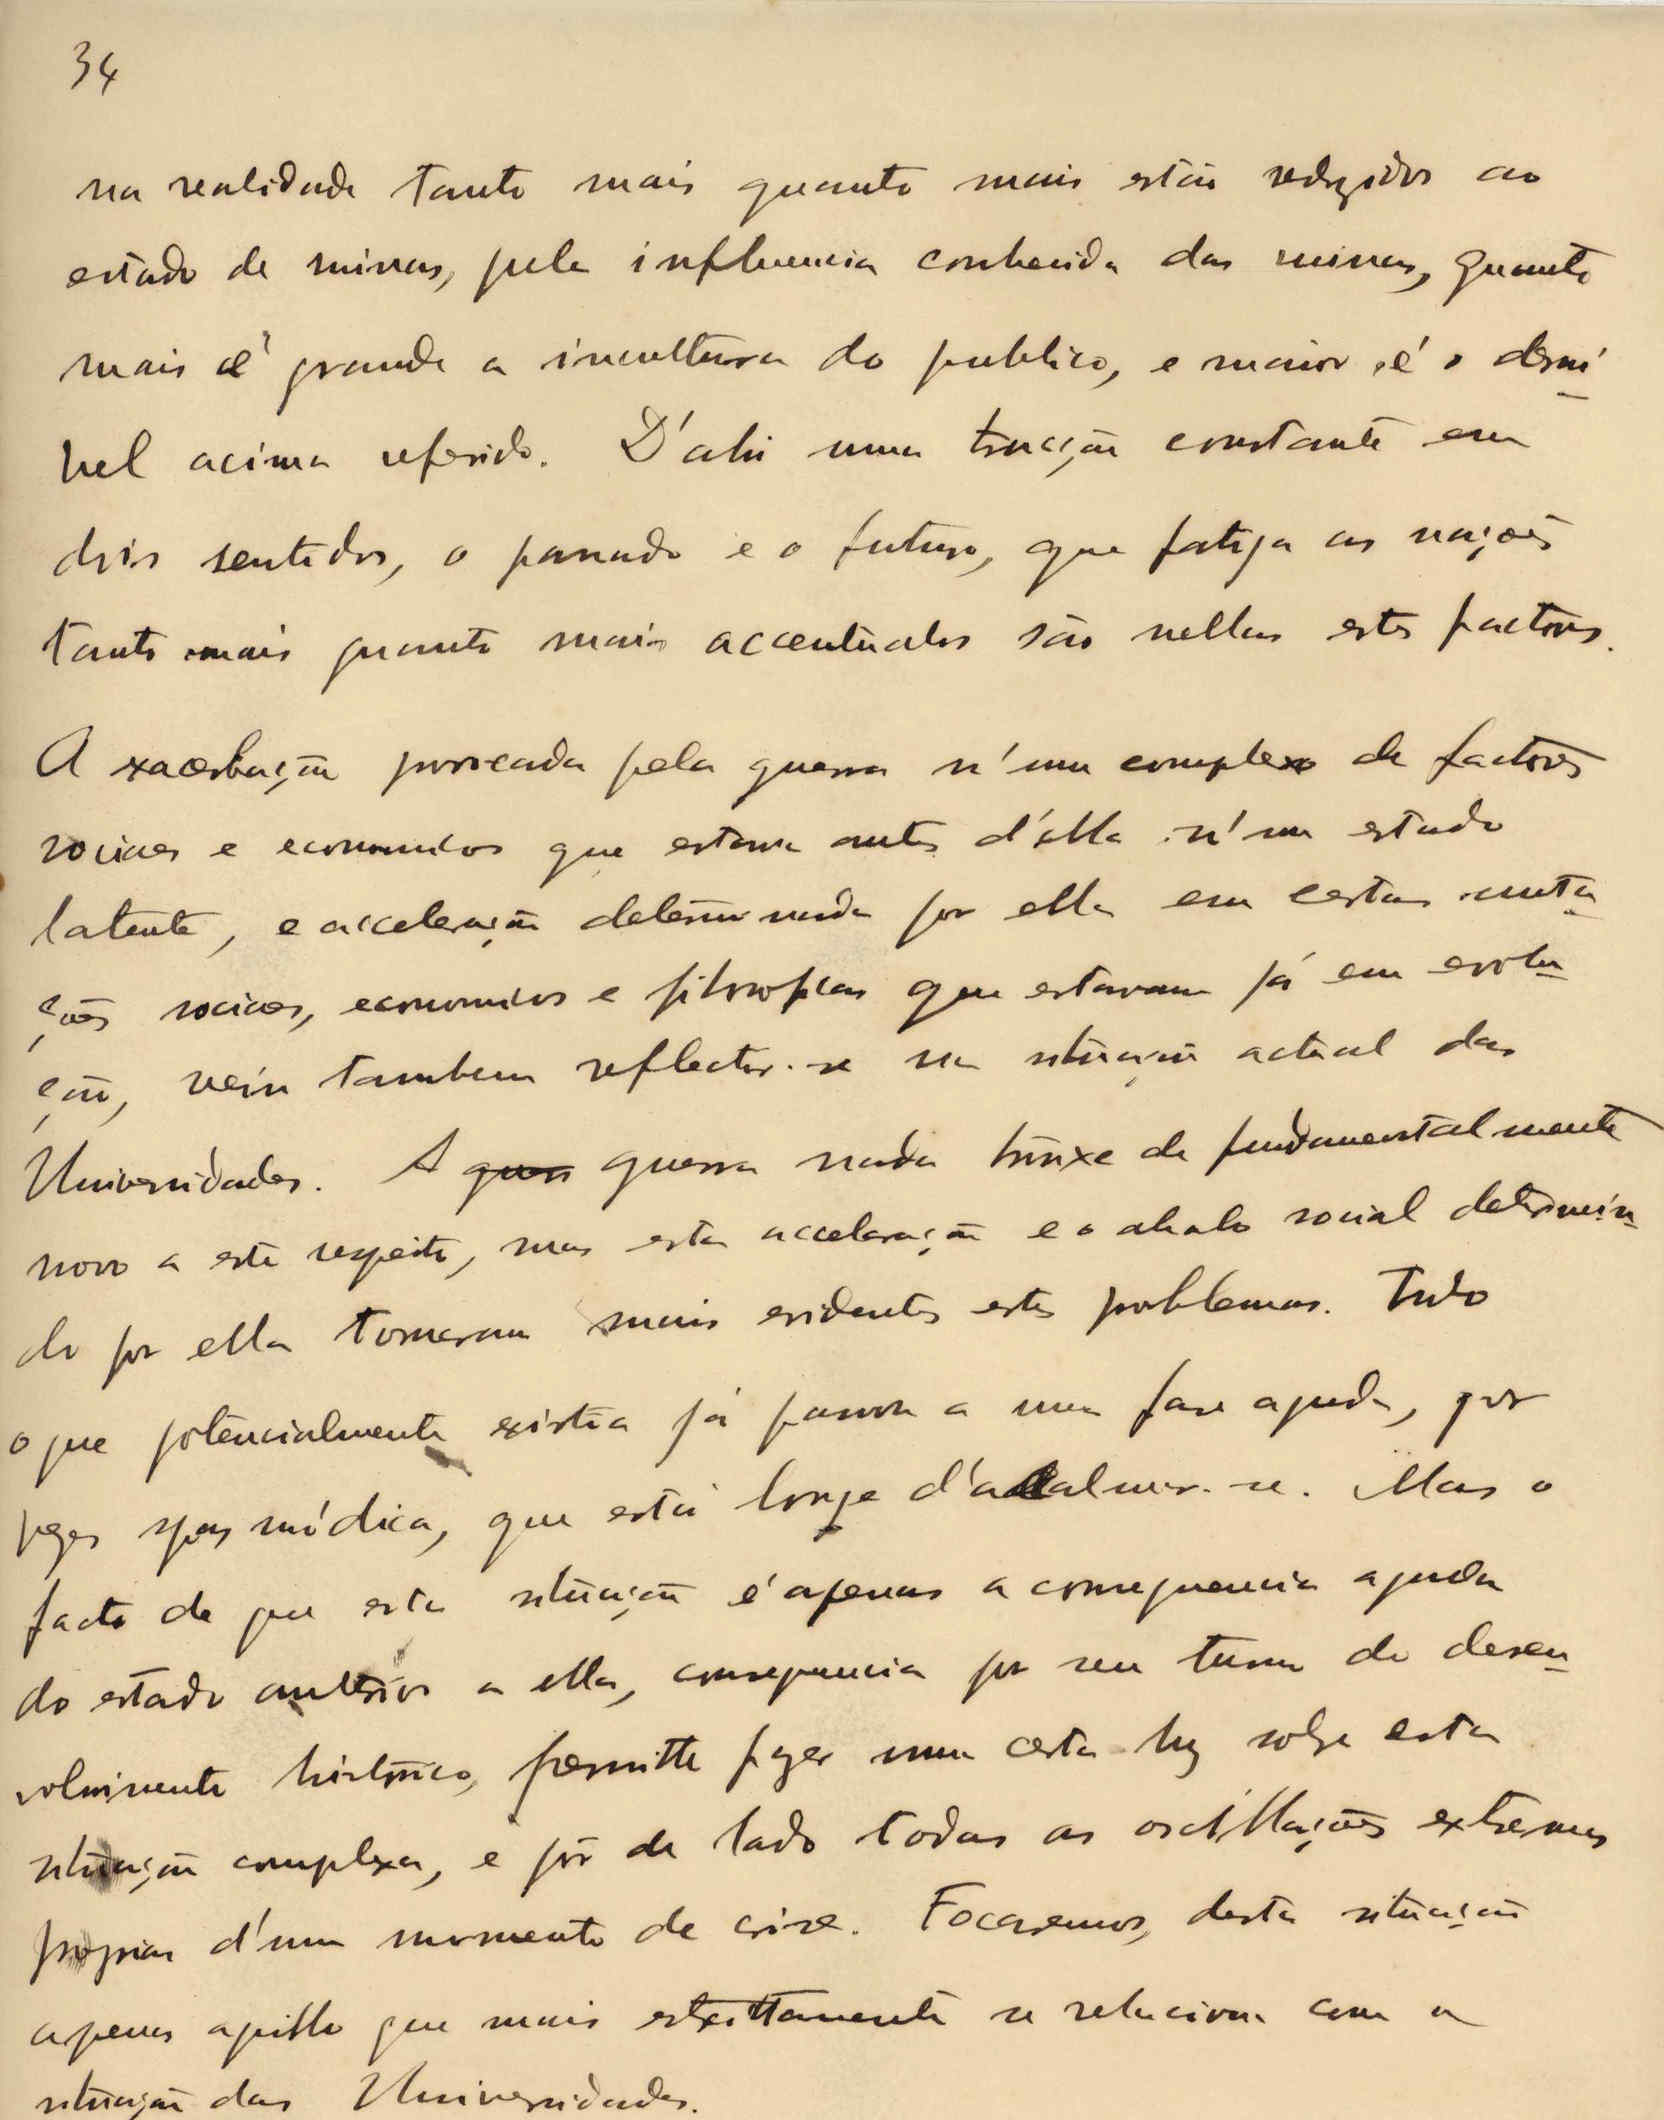 34
na realidade tanto mais quanto mais estão reduzidos ao
estado de minas, pela influencia conhecida das ruinas, quanto
mais é grande a incultura do publico, e maior é o desni-
vel acima referido. D'ahi uma tracção constante em
dois sentidos, o passado e o futuro, que fatiga as nações
tanto mais quanto mais accentuados são nellas estes factores.
A exacerbação provocada pela guerra n'um complexo de factores
sociaes e economicos que estava antes d'ella n'um estado
latente, e acceleração determinada por ella em certas muta-
ções sociaes, economicas e filosoficas que estavam já em evolu-
ção, veiu tambem reflectir-se na situação actual das
Universidades. A guerra nada trouxe de fundamentalmente
novo a este respeito, mas esta acceleração e o abalo social determina-
do por ella tornaram mais evidentes estes problemas. Tudo
o que potencialmente existia já passou a uma fase aguda, por
vezes spasmódica, que está longe d'acalmar-se. Mas o
facto de que esta situação é apenas a consequencia aguda
do estado anterior a ella, consequencia por seu turno do desen-
volvimento historico, permitte fazer uma certa luz sobre esta
situação complexa, e pôr de lado todas as oscillações extremas
proprias d'um momento de crise. Focaremos, desta situação
apenas aquillo que mais estrictamente se relaciona com a
situação das Universidades.